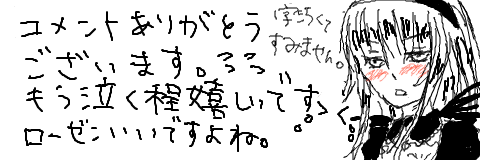 コメントありがとう
ございます。
もう泣く程嬉しいです。
ローゼンいいですよね。
字きちくて
すみません。